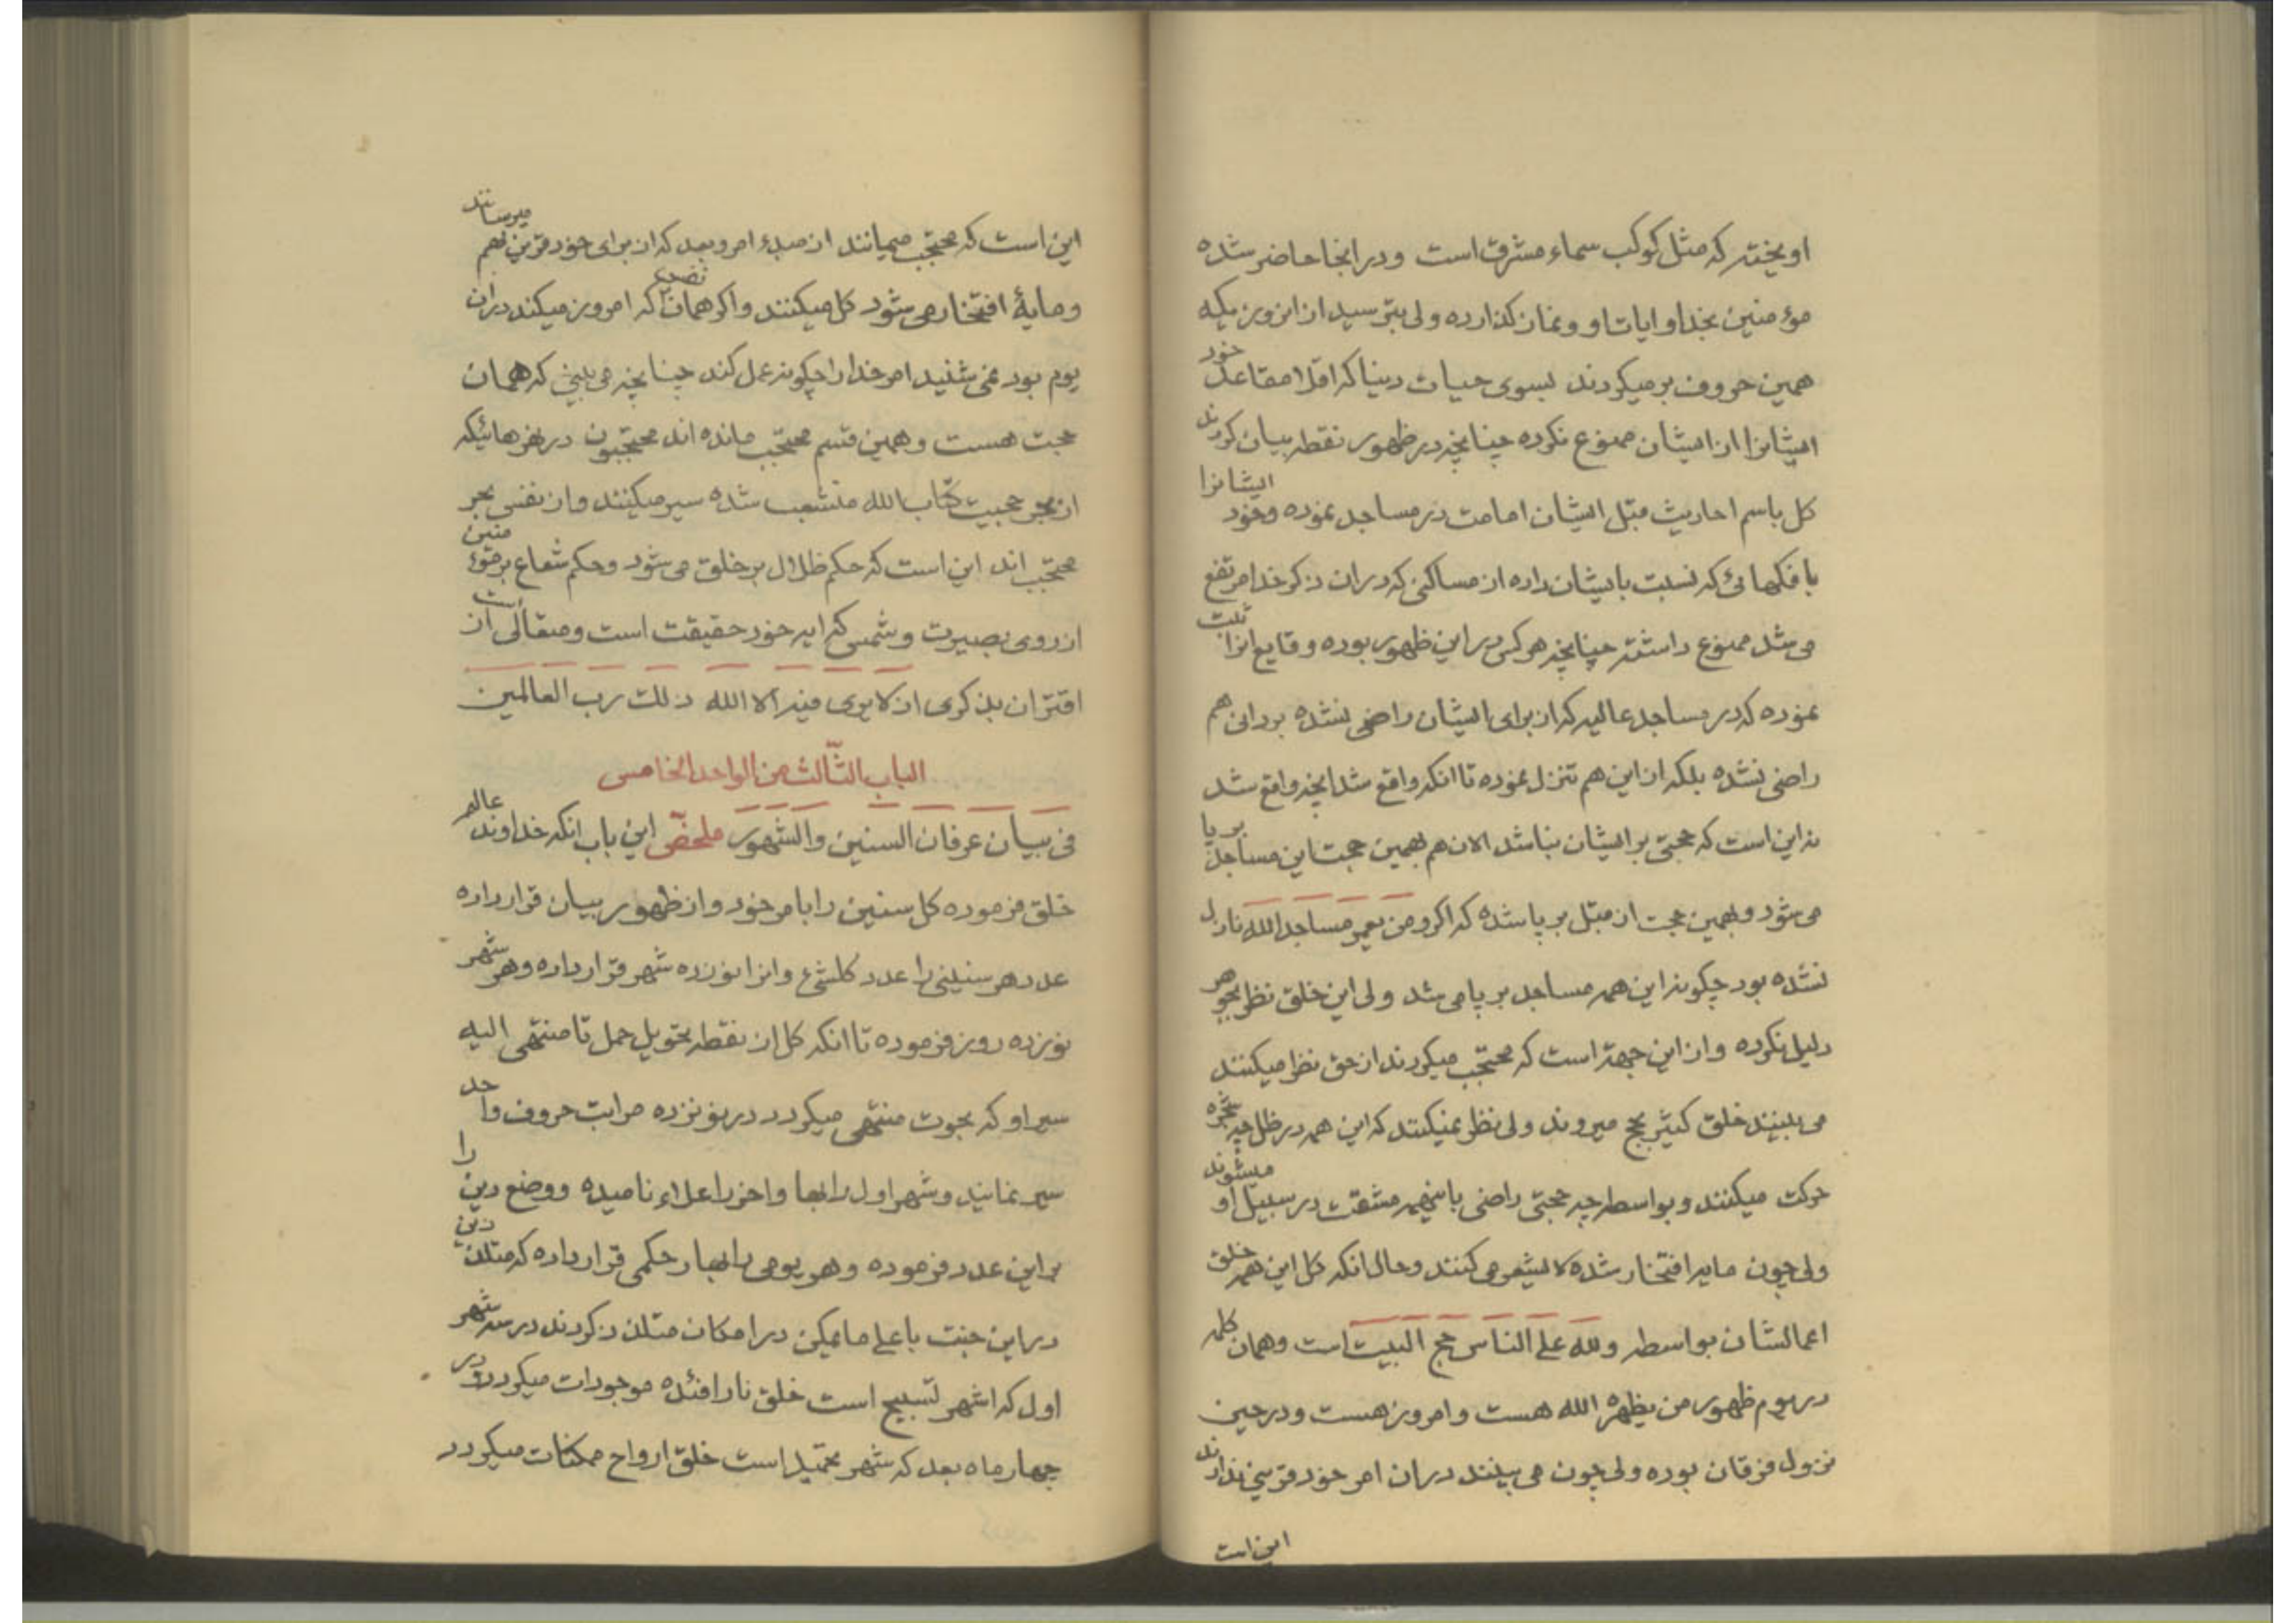 اویخته که مثل کوکب سماء مشرق است و در انجا حاضر شده
مؤمنین بخدا و ایات او و نماز کذارده ولی بترسید از ان روزیکه
همین حروف برمیکردند بسوی حیات دنیا که اقلا مقاعد خود
ایشانرا از ایشان ممنوع نکرده چنانچه در ظهور نقطه بیان کردند
کل باسم احادیث قبل ایشان امامت در مساجد نموده و خود ایشانرا
بافکهائی که نسبت بایشان داده از مساکنی که در ان ذکر خدا مرتفع
می شد ممنوع داشته چنانچه هر کس در این ظهور بوده وقایع انرا ثبت
نموده که در مساجد عالیه که از برای ایشان راضی نشده بردانی هم
راضی نشده بلکه از این هم تنزل نموده تا انکه واقع شد انچه واقع شد
نه این است که حجتی بر ایشان نباشد الان هم بهمین حجت این مساجد برپا
می شود و بهمین حجت از قبل برپا شده که اکر و من یعمر مساجد الله نازل
نشده بود چکونه این همه مساجد برپا می شد ولی این خلق نظر بجوهر
دلیل نکرده و از این جهة است که محتجب میکردند از حق نظر میکنند
می بینند خلق کثیر بحج میروند ولی نظر نمیکنند که این همه در ظل چه شجره
حرکت میکنند و بواسطه چه حجتی راضی باینهمه مشقت در سبیل او میشوند
ولی چون مایه افتخار شده لایشعر می کنند و حال انکه کل این همه خلق
اعمالشان بواسطه ولله علی الناس حج البیت است و همان کلمه
در یوم ظهور من یظهره الله هست و امروز هست و در حین
نزول فرقان بوده ولی چون می بینند در ان امر خود قرینی ندارند
این است
این است که محتجب میمانند از مبدء امر و بعد که از برای خود قرین بهم میرسانند
و مایهٔ افتخار می شود کل میکنند و اکر همان تضرع که امروز میکند در ان
یوم بود نمی شنید امر خدا را چکونه عمل کند چنانچه می بینی که همان
حجت هست و همین قسم محتجب مانده اند محتجبون در نهرهائیکه
از بحر حجیت کتاب الله منشعب شده سیر میکنند و از نفس بحر
محتجب اند این است که حکم ظلال بر خلق می شود و حکم شعاع بر مؤمنین
از روی بصیرت و شمس که ایه خود حقیقت است و متعالی است از
اقتران بذکری از لا یری فیه الا الله ذلک رب العالمین
الباب الثّالث من الواحد الخامس
فی بیان عرفان السنین والشهور ملخص این باب انکه خداوند عالم
خلق فرموده کل سنین را بامر خود و از ظهور بیان قرار داده
عدد هر سنینی را عدد کلشیء و انرا نوزده شهر قرار داده و هر شهر
نوزده روز فرموده تا انکه کل از نقطه تحویل حمل تا منتهی الیه
سیر او که بحوت منتهی میکردد در نوزده مراتب حروف واحد
سیر نمایند و شهر اول را بها و اخر را علاء نامیده و وضع دین را
بر این عدد فرموده و هر یومی را بها ر حکمی قرار داده که متلذذین
در این جنت باعلی ما یمکن در امکان متلذذ کردند در سه شهر
اول که اشهر تسبیح است خلق نار افئده موجودات میکردد و در
چهار ماه بعد که شهر تحمید است خلق ارواح ممکنات میکردد